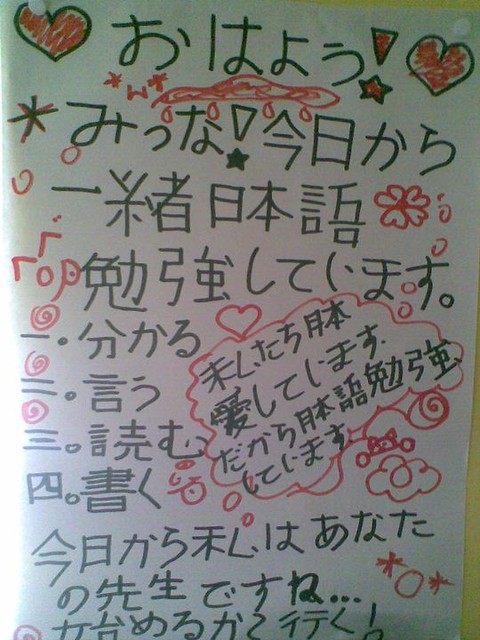 おはよう!
みっな!今日から
一緒日本語
勉強しています。
一.分かる
二。言う
三。読む
四。書く
私たち日本
愛しています.
だから日本語勉強
しています
今日から私はあなた
の先生ですね...
始めるかで行く!